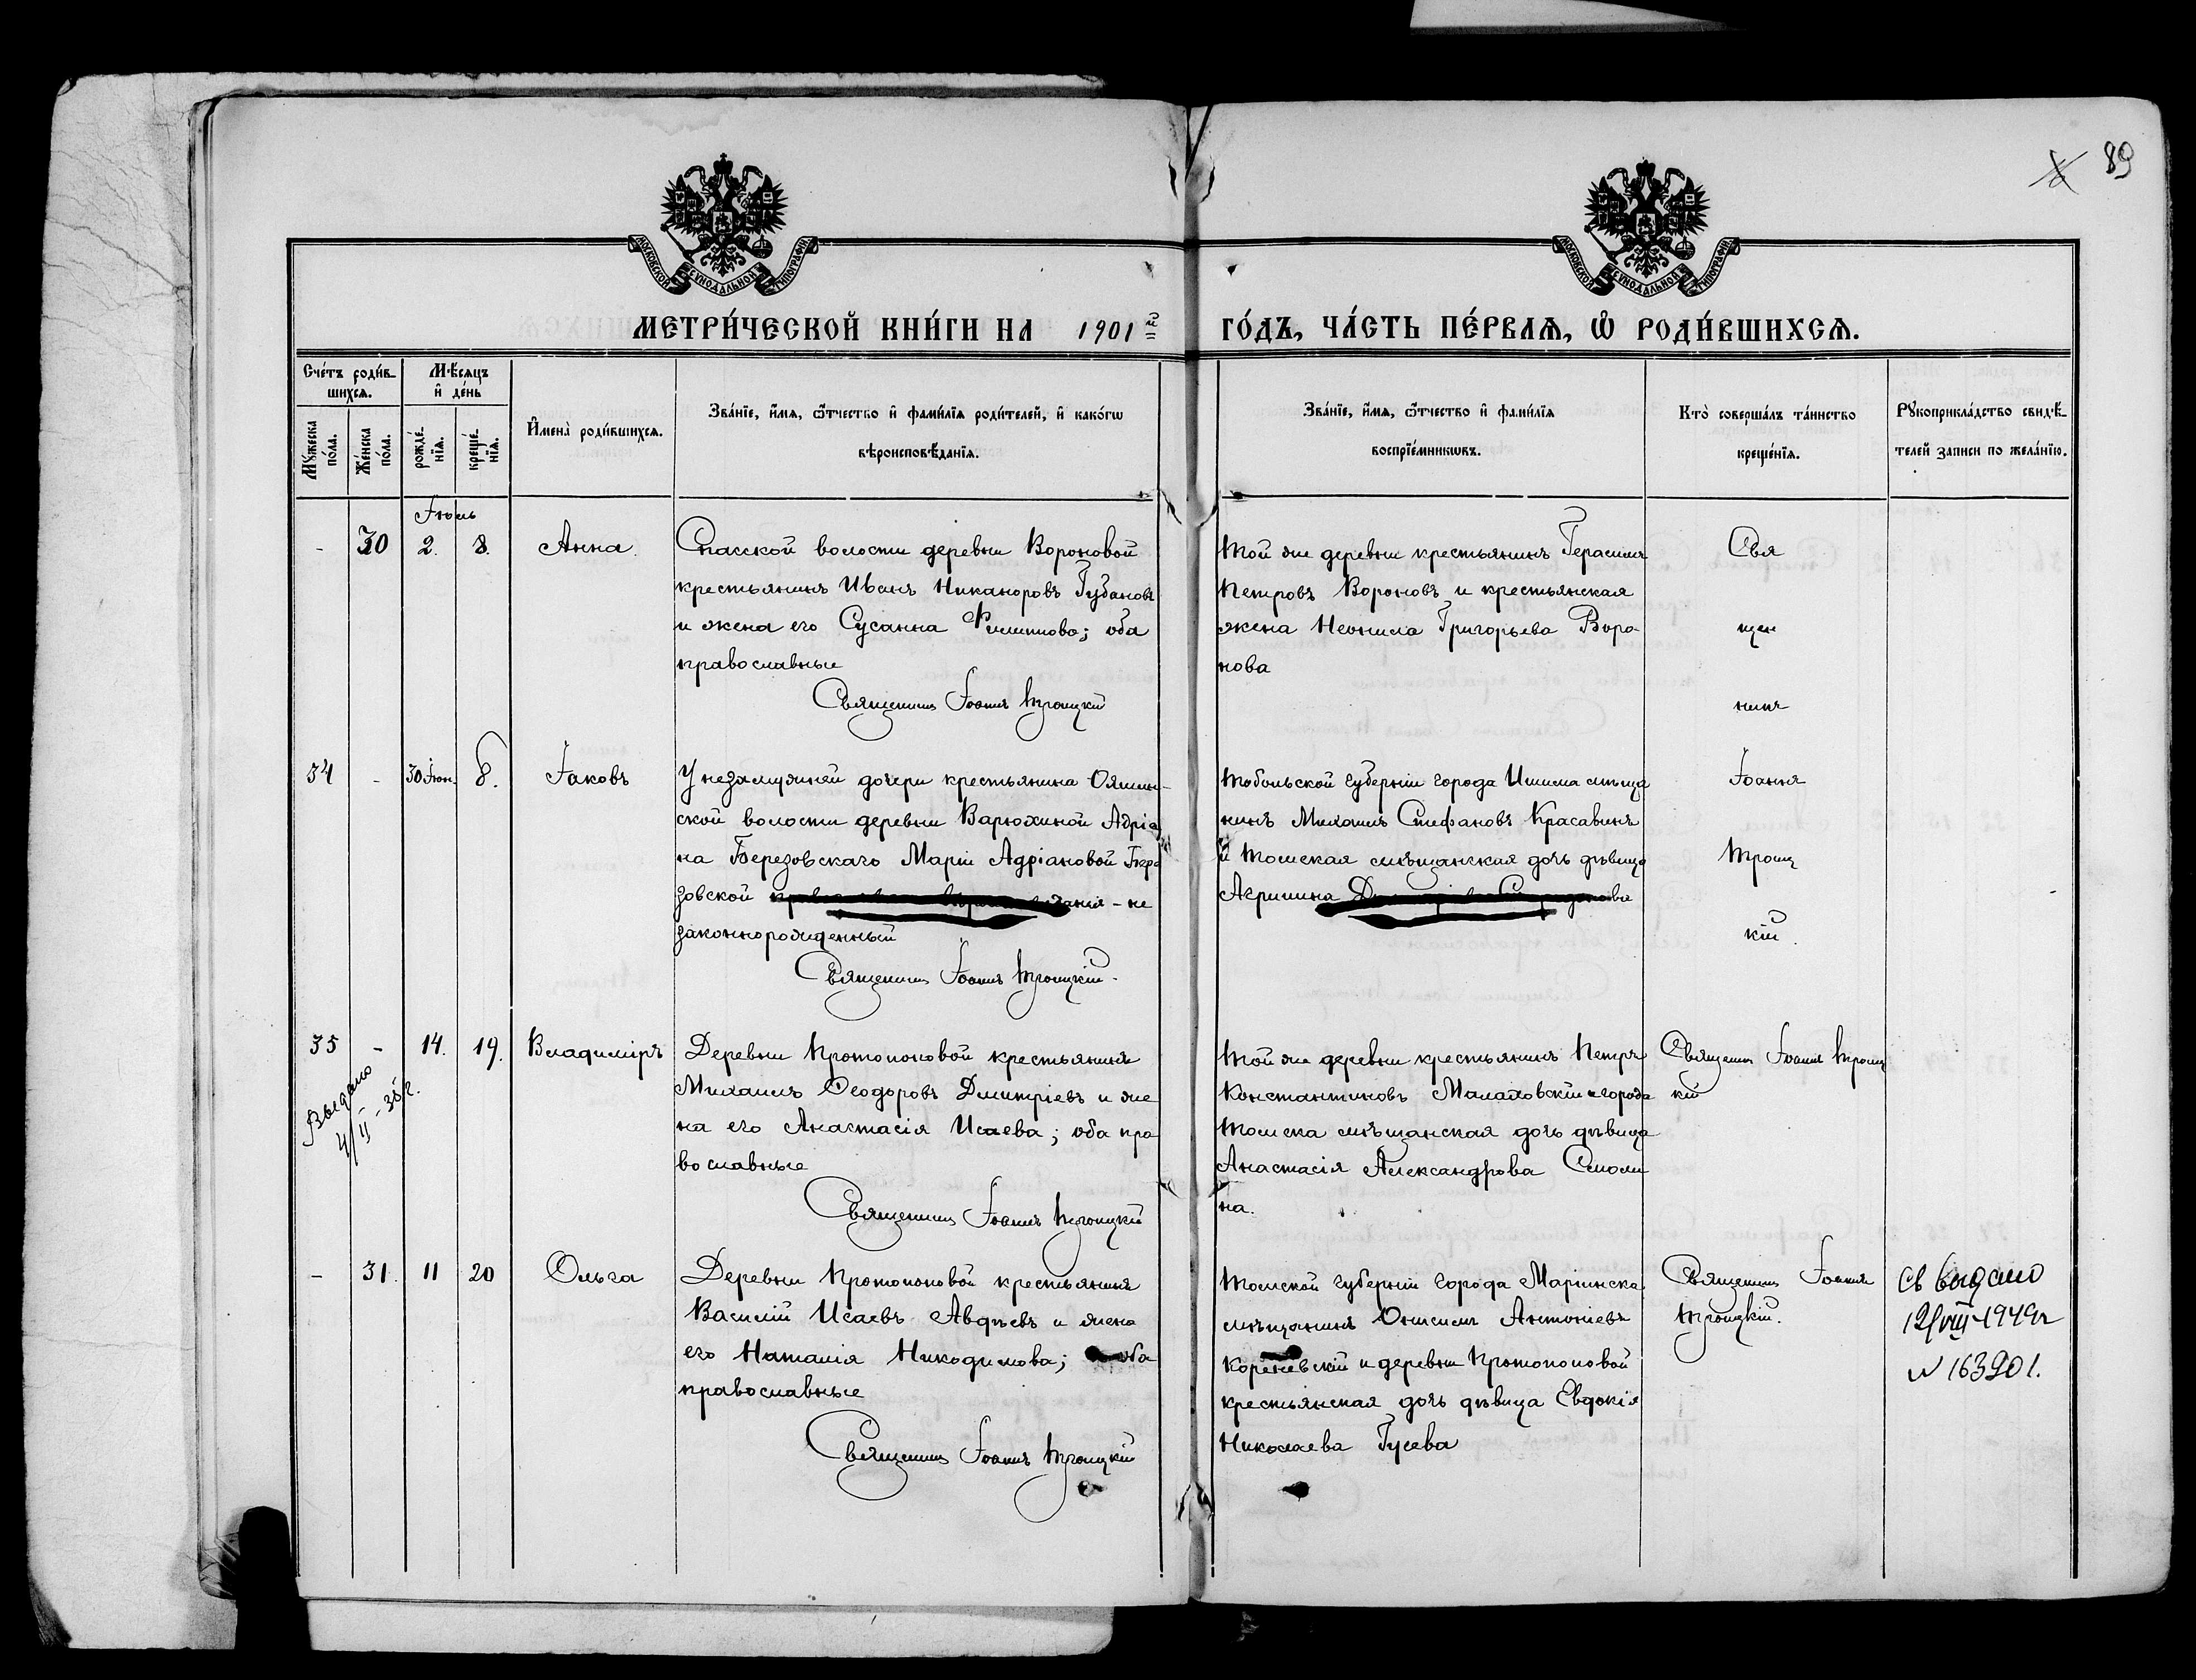 89
МОСКОВСКОЙ СѴНОДАЛЬНОЙ ТИПОГРАФІИ
МОСКОВСКОЙ СѴНОДАЛЬНОЙ ТИПОГРАФІИ
МЕТРИ́ЧЕСКОЙ КНИ́ГИ НА 1901й ГО́ДЪ, ЧА́СТЬ ПЕ́РВАѦ, Ѡ҃ РОДИ́ВШИХСѦ.
Сче́тъ роди́в-
шихсѧ.
Мѣ́сѧцъ
и҆ де́нь
Мꙋ́жеска по́ла.
Же́нска по́ла.
рожде́-
нїѧ.
креще́-
нїѧ.
И҆мена̀ роди́вшихсѧ.
Зва́нїе, и҆́мѧ, ѻ҆́тчество и҆ фами́лїѧ роди́телей, и҆ како́гѡ
вѣроисповѣ́данїѧ.
Зва́нїе, и҆́мѧ, ѻ҆́тчество и҆ фами́лїѧ
воспрїе́мникѡвъ.
Кто̀ соверша́лъ та́инство
креще́нїѧ.
Рꙋкоприкла́дство свидѣ́-
телей записи по жела́нїю.
Іюль
- 30 2. 8. Анна.
Спасской волости деревни Вороновой
крестьянинъ Иванъ Никаноровъ Губановъ
и жена его Сусанна Филиппова; оба
православные
Священникъ Іоаннъ Троицкій
Той же деревни крестьянинъ Герасимъ
Петровъ Вороновъ и крестьянская
жена Неонила Григорьева Воро-
нова
Свя
щен
никъ
34 - 30 Іюн. 8. Іаковъ
У незамужней дочери крестьянина Ояшин-
ской волости деревни Варюхиной Адріа
на Березовскаго Маріи Адріановой Бере
зовской - не
законнорожденный
Священникъ Іоаннъ Троицкій.
Тобольской губерніи города Ишима мѣща
нинъ Михаилъ Стефановъ Красавинъ
и Томская мѣщанская дочь дѣвица
Акриппина
Іоаннъ
Троиц
кій.
35 - 14. 19. Владиміръ
Выдано
4/II-35 г.
Деревни Протопоповой крестьянинъ
Михаилъ Ѳеодоровъ Дмитріевъ и же
на его Анастасія Исаева; оба пра
вославные
Священникъ Іоаннъ Троицкій
Той же деревни крестьянинъ Петръ
Константиновъ Малаховскій и города
Томска мѣщанская дочь дѣвица
Анастасія Александрова Смоли
на.
Священникъ Іоаннъ Троиц
кій
- 31. 11 20 Ольга
Деревни Протопоповой крестьянинъ
Василій Исаевъ Авдѣевъ и жена
его Наталія Никодимова; оба
православные
Священникъ Іоаннъ Троицкій
Томской губерніи города Маріинска
мѣщанинъ Онисимъ Антоніевъ
Кореневскій и деревни Протопоповой
крестьянская дочь дѣвица Евдокія
Николаева Гусева
Священникъ Іоаннъ
Троицкій.
Св выдано
12/VIII-1949г
N 163201.